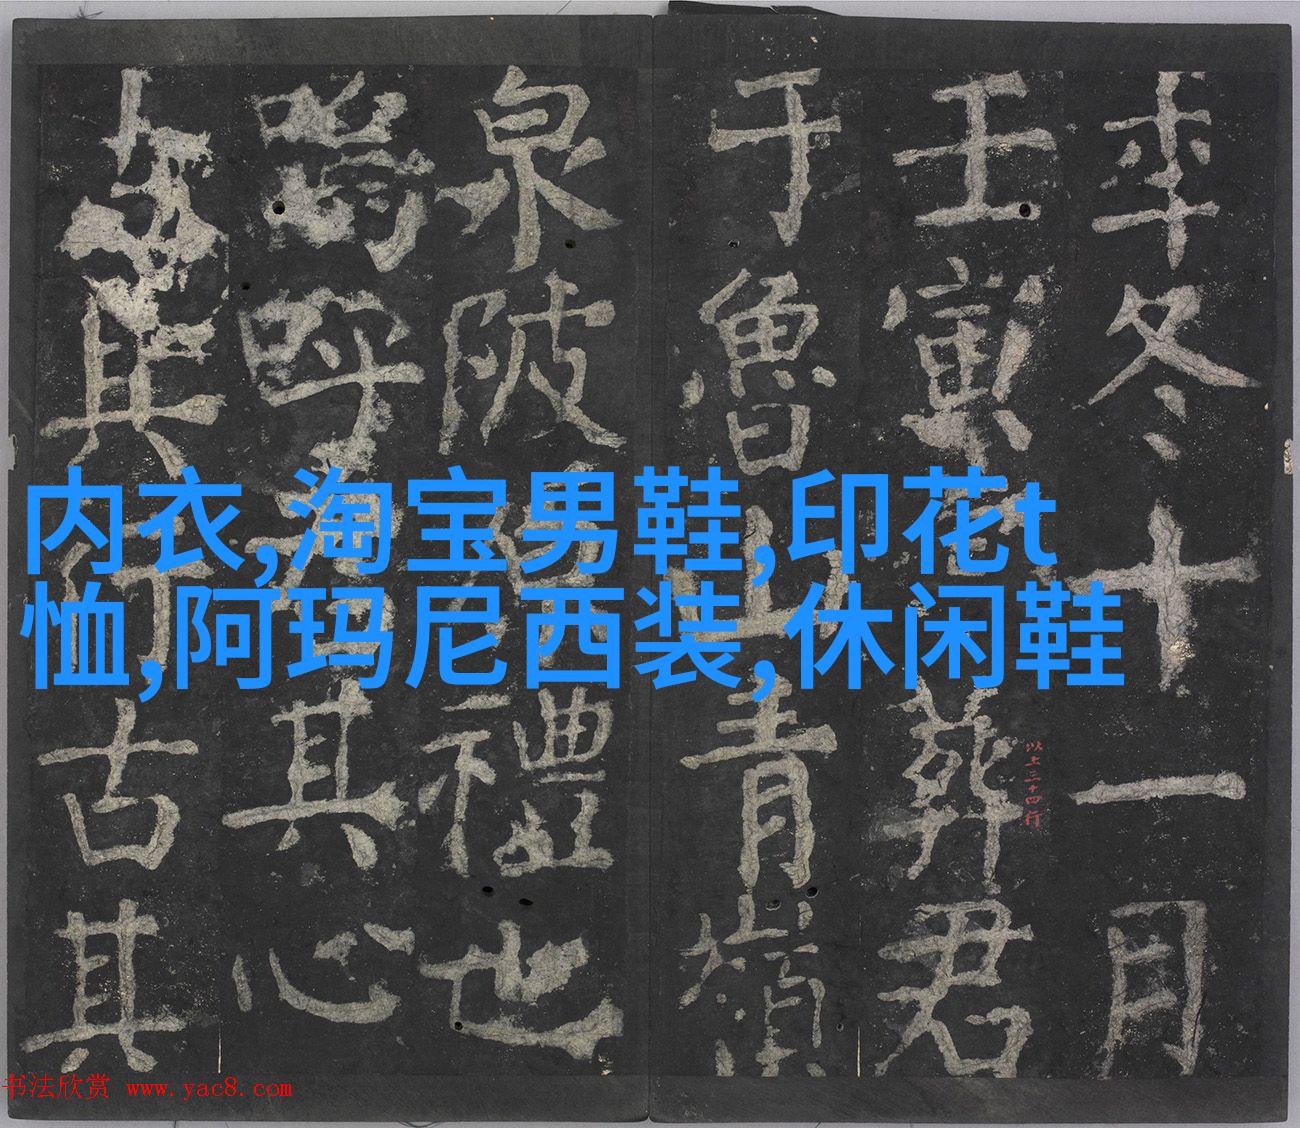 年冬十一月
壬寅葬君
于魯山青嶺
泉陂禮也
嗚呼君其心
其行古其
以上三十四行
内衣,淘宝男鞋,印花t
恤,阿玛尼西装,休闲鞋
书法欣赏 www.yac8.com